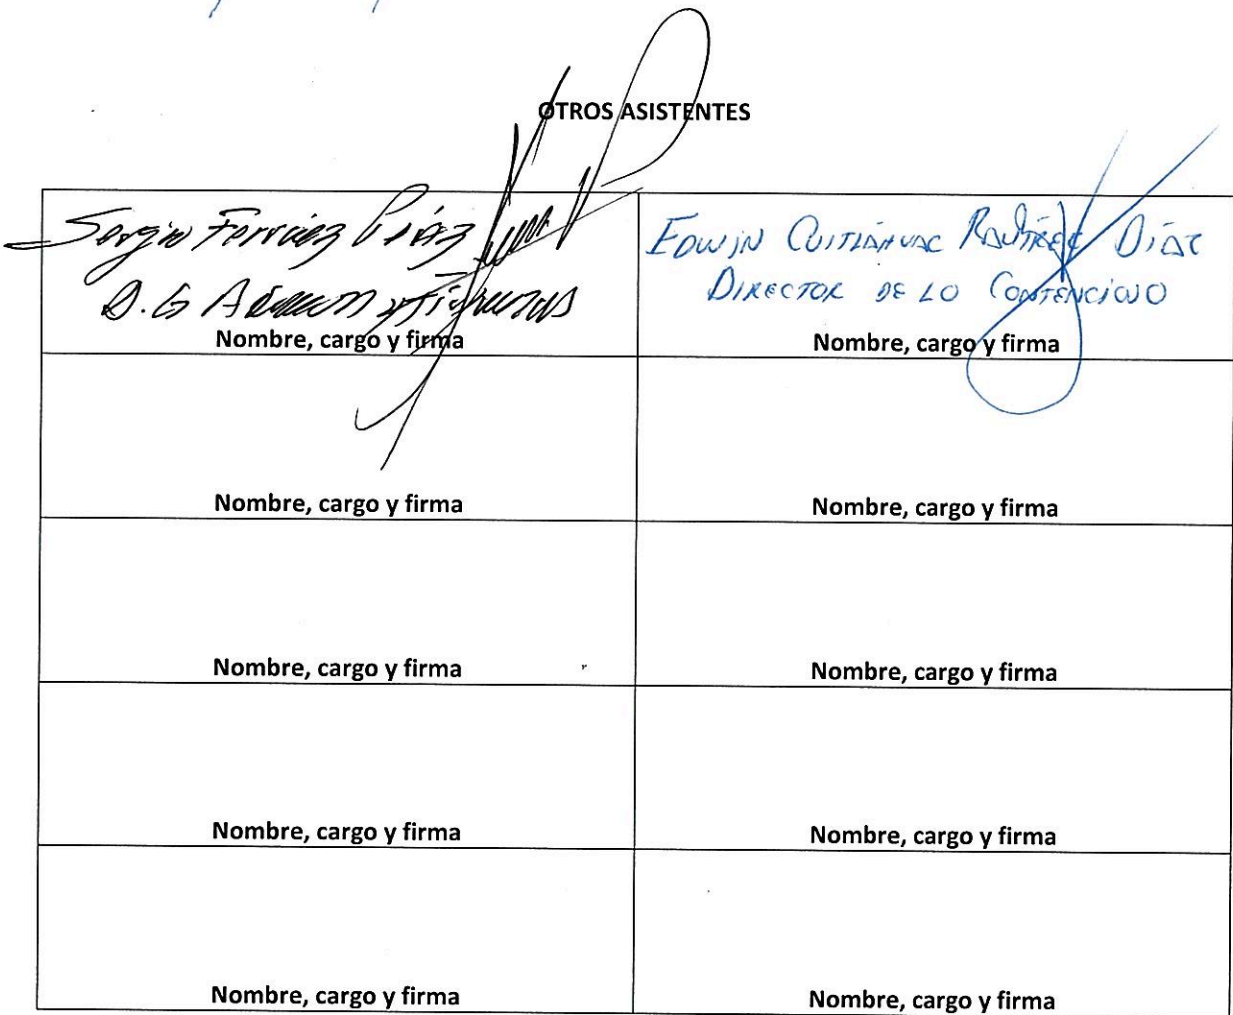 OTROS ASISTENTES
Sergio
D.G
Nombre, cargo y firma
EDWIN CUITLÁHUAC RAMÍREZ DÍAZ
DIRECTOR DE LO CONTENCIOSO
Nombre, cargo y firma
Nombre, cargo y firma
Nombre, cargo y firma
Nombre, cargo y firma
Nombre, cargo y firma
Nombre, cargo y firma
Nombre, cargo y firma
Nombre, cargo y firma
Nombre, cargo y firma